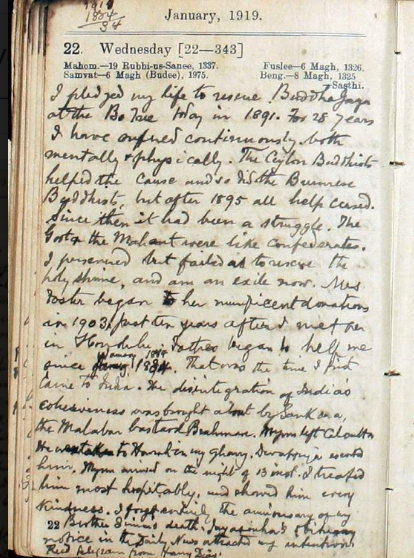 1918
1884
34
January, 1919.
22. Wednesday [22—343]
Mahom.—19 Rubbi-us-Sanee, 1337. Fuslee—6 Magh, 1326.
Samvat—6 Magh (Budee), 1975. Beng.—8 Magh, 1325
Sasthi.
I pledged my life to rescue Buddha Gaya
at the Bo Tree today in 1891. For 28 years
I have suffered continuously both
mentally & physically. The Ceylon Buddhists
helped the cause and so did the Burmese
Buddhists, but after 1895 all help ceased.
Since then it had been a struggle. The
Govt & the Mahant were like confederates.
I persevered but failed to rescue the
holy shrine, and am an exile now. Mrs
Foster began her munificent donations
in 1903, just ten years after I met her
in Honolulu. Father began to help me
since January 1884. That was the time I first
came to India. The disintegration of India's
cohesiveness was brought about by Sankara,
the Malabar bastard Brahman. Wym left Calcutta
He went to Howrah in my gharry. Devapriya escorted
him. Wym arrived on the night of 13 inst. I treated
him most hospitably, and showed him every
kindness. I forgot the anniversary of my
22 Brother's death. Jayasinha's obituary
notice in the Daily News attracted my attention
Recd telegram from Harry Dias.